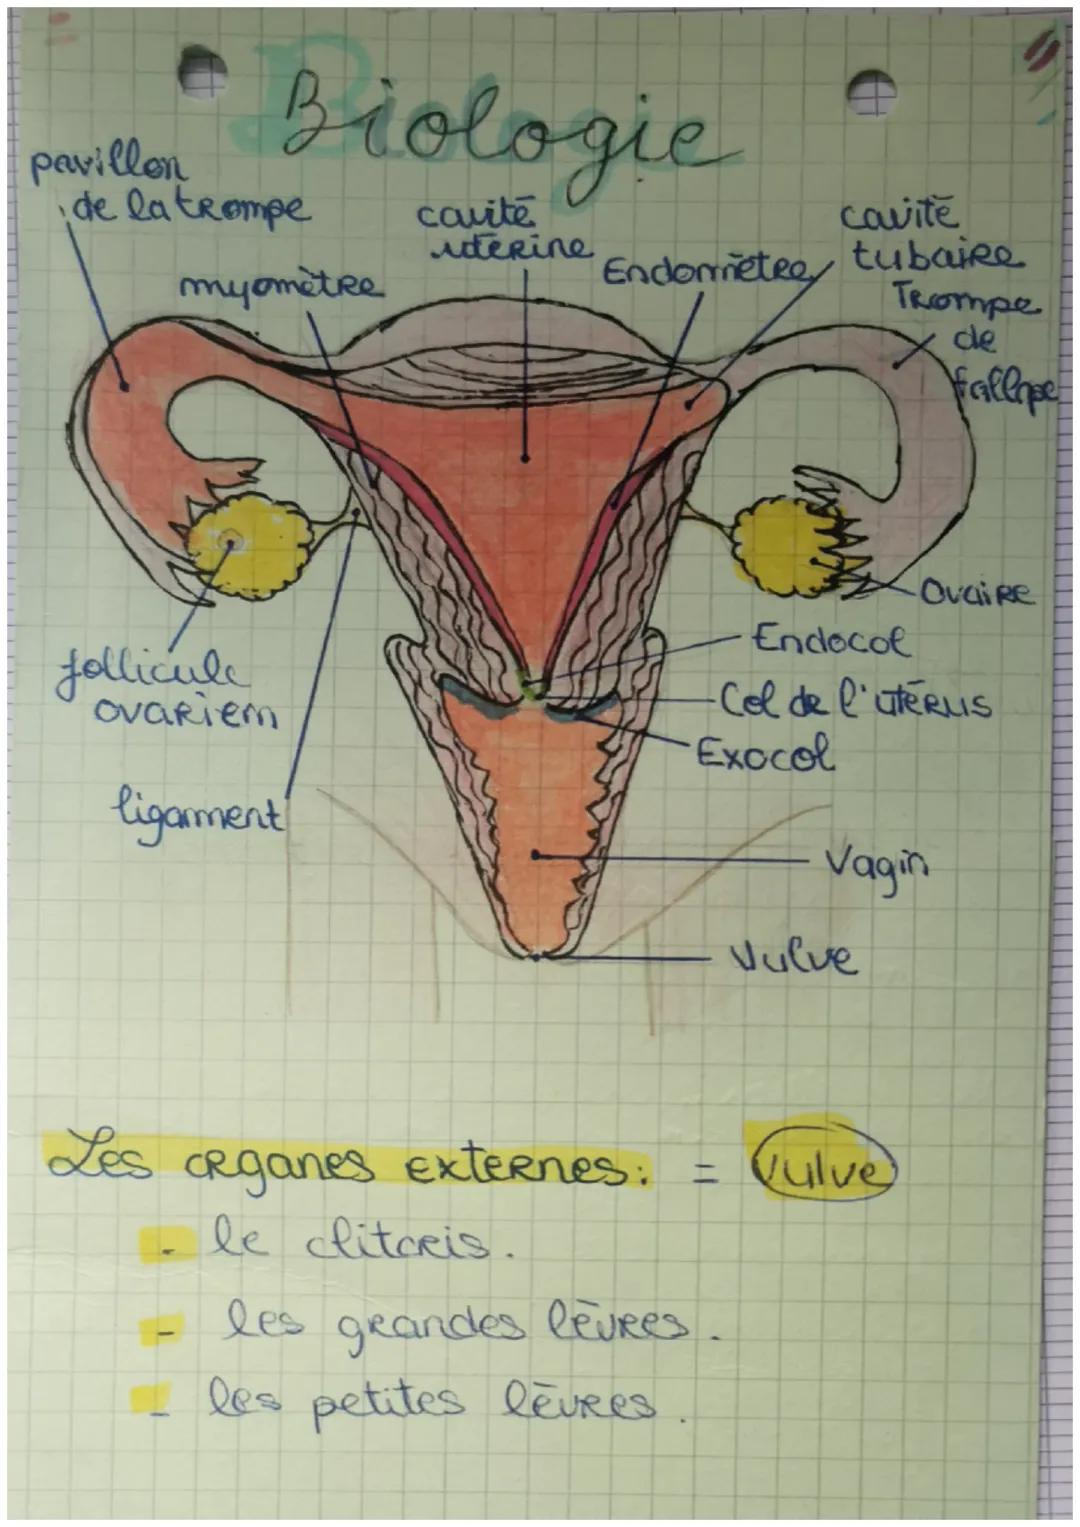 Biologie
pavillon
de la trompe
cavité
utérine
cavité
tubaire
myomètre
Endomètre
Trompe
de
fallope
Ovaire
Endocol
follicule
ovarien
Col de l'utérus
Exocol
ligament
Vagin
Vulve
Les organes externes: = Vulve
- le clitoris.
- les grandes lèvres.
- les petites lèvres.